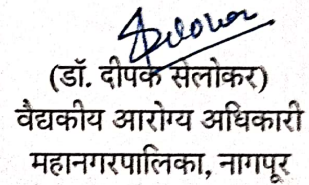 (डॉ. दीपक सेलोकर)
वैद्यकीय आरोग्य अधिकारी
महानगरपालिका, नागपूर